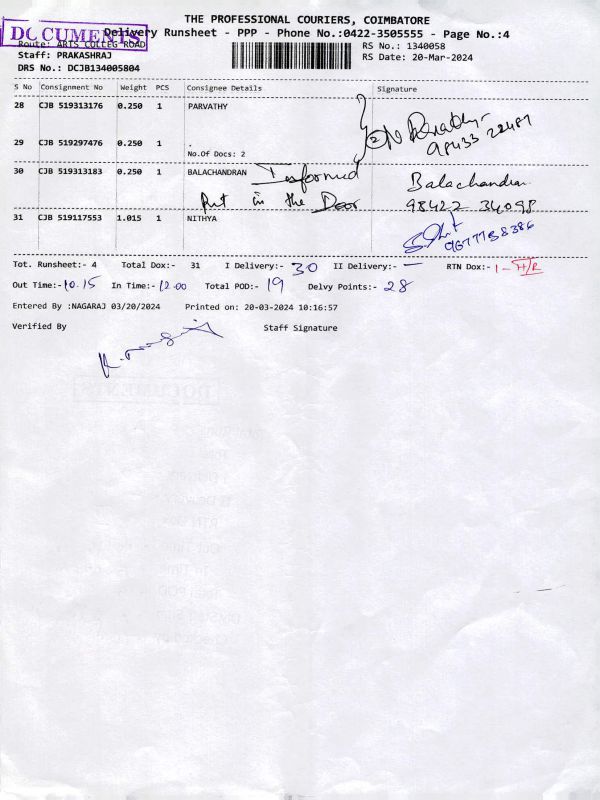 THE PROFESSIONAL COURIERS, COIMBATORE
DOCUMENTS
Delivery Runsheet - PPP - Phone No.:0422-3505555 - Page No.:4
Route: ARTS COLLEG ROAD
RS No.: 1340058
Staff: PRAKASHRAJ
RS Date: 20-Mar-2024
DRS No.: DCJB134005804
S No Consignment No Weight PCS Consignee Details Signature
28 CJB 519313176 0.250 1 PARVATHY
29 CJB 519297476 0.250 1 .
No.Of Docs: 2
30 CJB 519313183 0.250 1 BALACHANDRAN Informed Balachandran
Put in the Door 98422 34098
31 CJB 519117553 1.015 1 NITHYA
Tot. Runsheet:- 4 Total Dox:- 31 I Delivery:- 30 II Delivery:- — RTN Dox:- 1-
Out Time:- 10.15 In Time:- 12.00 Total POD:- 19 Delvy Points:- 28
Entered By :NAGARAJ 03/20/2024 Printed on: 20-03-2024 10:16:57
Verified By Staff Signature